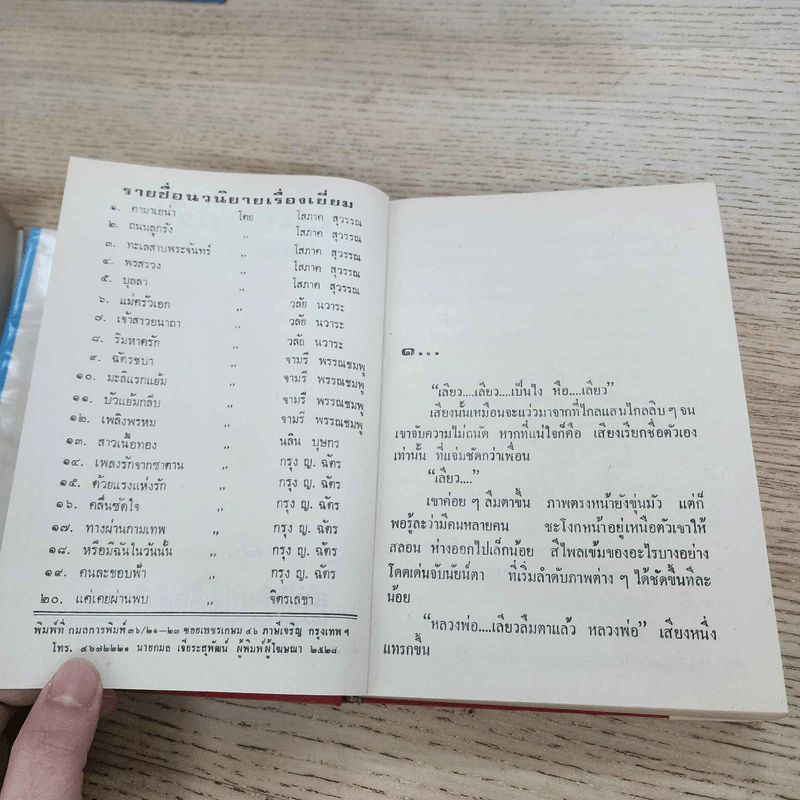 รายชื่อนวนิยายเรื่องเยี่ยม
๑. คามาเอน่า โดย โสภาค สุวรรณ
๒. ถนนลูกรัง ,, โสภาค สุวรรณ
๓. ทะเลสาบพระจันทร์ ,, โสภาค สุวรรณ
๔. พรสรวง ,, โสภาค สุวรรณ
๕. บุลลา ,, โสภาค สุวรรณ
๖. แม่ครัวเอก ,, วลัย นวาระ
๗. เจ้าสาวอนาถา ,, วลัย นวาระ
๘. ริมหาดรัก ,, วลัย นวาระ
๙. ฉัตรชบา ,, จามรี พรรณชมพู
๑๐. มะลิแรกแย้ม ,, จามรี พรรณชมพู
๑๑. บัวแย้มกลีบ ,, จามรี พรรณชมพู
๑๒. เพลิงพรหม ,, จามรี พรรณชมพู
๑๓. สาวเนื้อทอง ,, นลิน บุษกร
๑๔. เพลงรักจากซาตาน ,, กรุง ญ. ฉัตร
๑๕. ด้วยแรงแห่งรัก ,, กรุง ญ. ฉัตร
๑๖. คลื่นซัดใจ ,, กรุง ญ. ฉัตร
๑๗. ทางผ่านกามเทพ ,, กรุง ญ. ฉัตร
๑๘. หรือมีฉันในวันนั้น ,, กรุง ญ. ฉัตร
๑๙. คนละขอบฟ้า ,, กรุง ญ. ฉัตร
๒๐. แค่เคยผ่านพบ ,, จิตรเลขา
พิมพ์ที่ กมลการพิมพ์ ๓๖/๒๑–๒๓ ซอยเพชรเกษม ๔๖ ภาษีเจริญ กรุงเทพ ฯ
โทร. ๔๖๗๒๒๒๑ นายกมล เจียระสุพัฒน์ ผู้พิมพ์ผู้โฆษณา ๒๕๒๘
๑...
“เลียว....เลียว....เป็นไง หือ....เลียว”
เสียงนั้นเหมือนจะแว่วมาจากที่ไกลแสนไกลลิบ ๆ จน
เขาจับความไม่ถนัด หากที่แน่ใจก็คือ เสียงเรียกชื่อตัวเอง
เท่านั้น ที่แจ่มชัดกว่าเพื่อน
“เลียว....”
เขาค่อย ๆ ลืมตาขึ้น ภาพตรงหน้ายังขุ่นมัว แต่ก็
พอรู้ละว่ามีคนหลายคน ชะโงกหน้าอยู่เหนือตัวเขาให้
สลอน ห่างออกไปเล็กน้อย สีไพลเข้มของอะไรบางอย่าง
โดดเด่นจับนัยน์ตา ที่เริ่มลำดับภาพต่าง ๆ ได้ชัดขึ้นทีละ
น้อย
“หลวงพ่อ....เลียวลืมตาแล้ว หลวงพ่อ” เสียงหนึ่ง
แทรกขึ้น